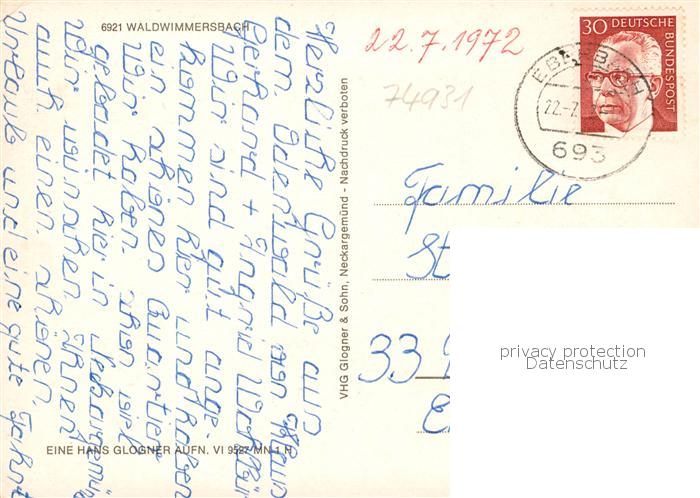 6921 WALDWIMMERSBACH
22.7.1972
74931
30 DEUTSCHE
BUNDESPOST
EBERBACH
22.-7.
693
Herzliche Grüße aus
dem Odenwald von
Gerhard + Ingrid
Wir sind gut ange-
kommen hier und haben
ein schönes Quartier
Wir haben schon viel
gebadet hier in
Wir wünschen Ihnen
auch einen schönen
Urlaub und eine gute Fahrt
EINE HANS GLOGNER AUFN. VI 9527 MN 1 H
VHG Glogner & Sohn, Neckargemünd - Nachdruck verboten
Familie
St
33
privacy protection
Datenschutz